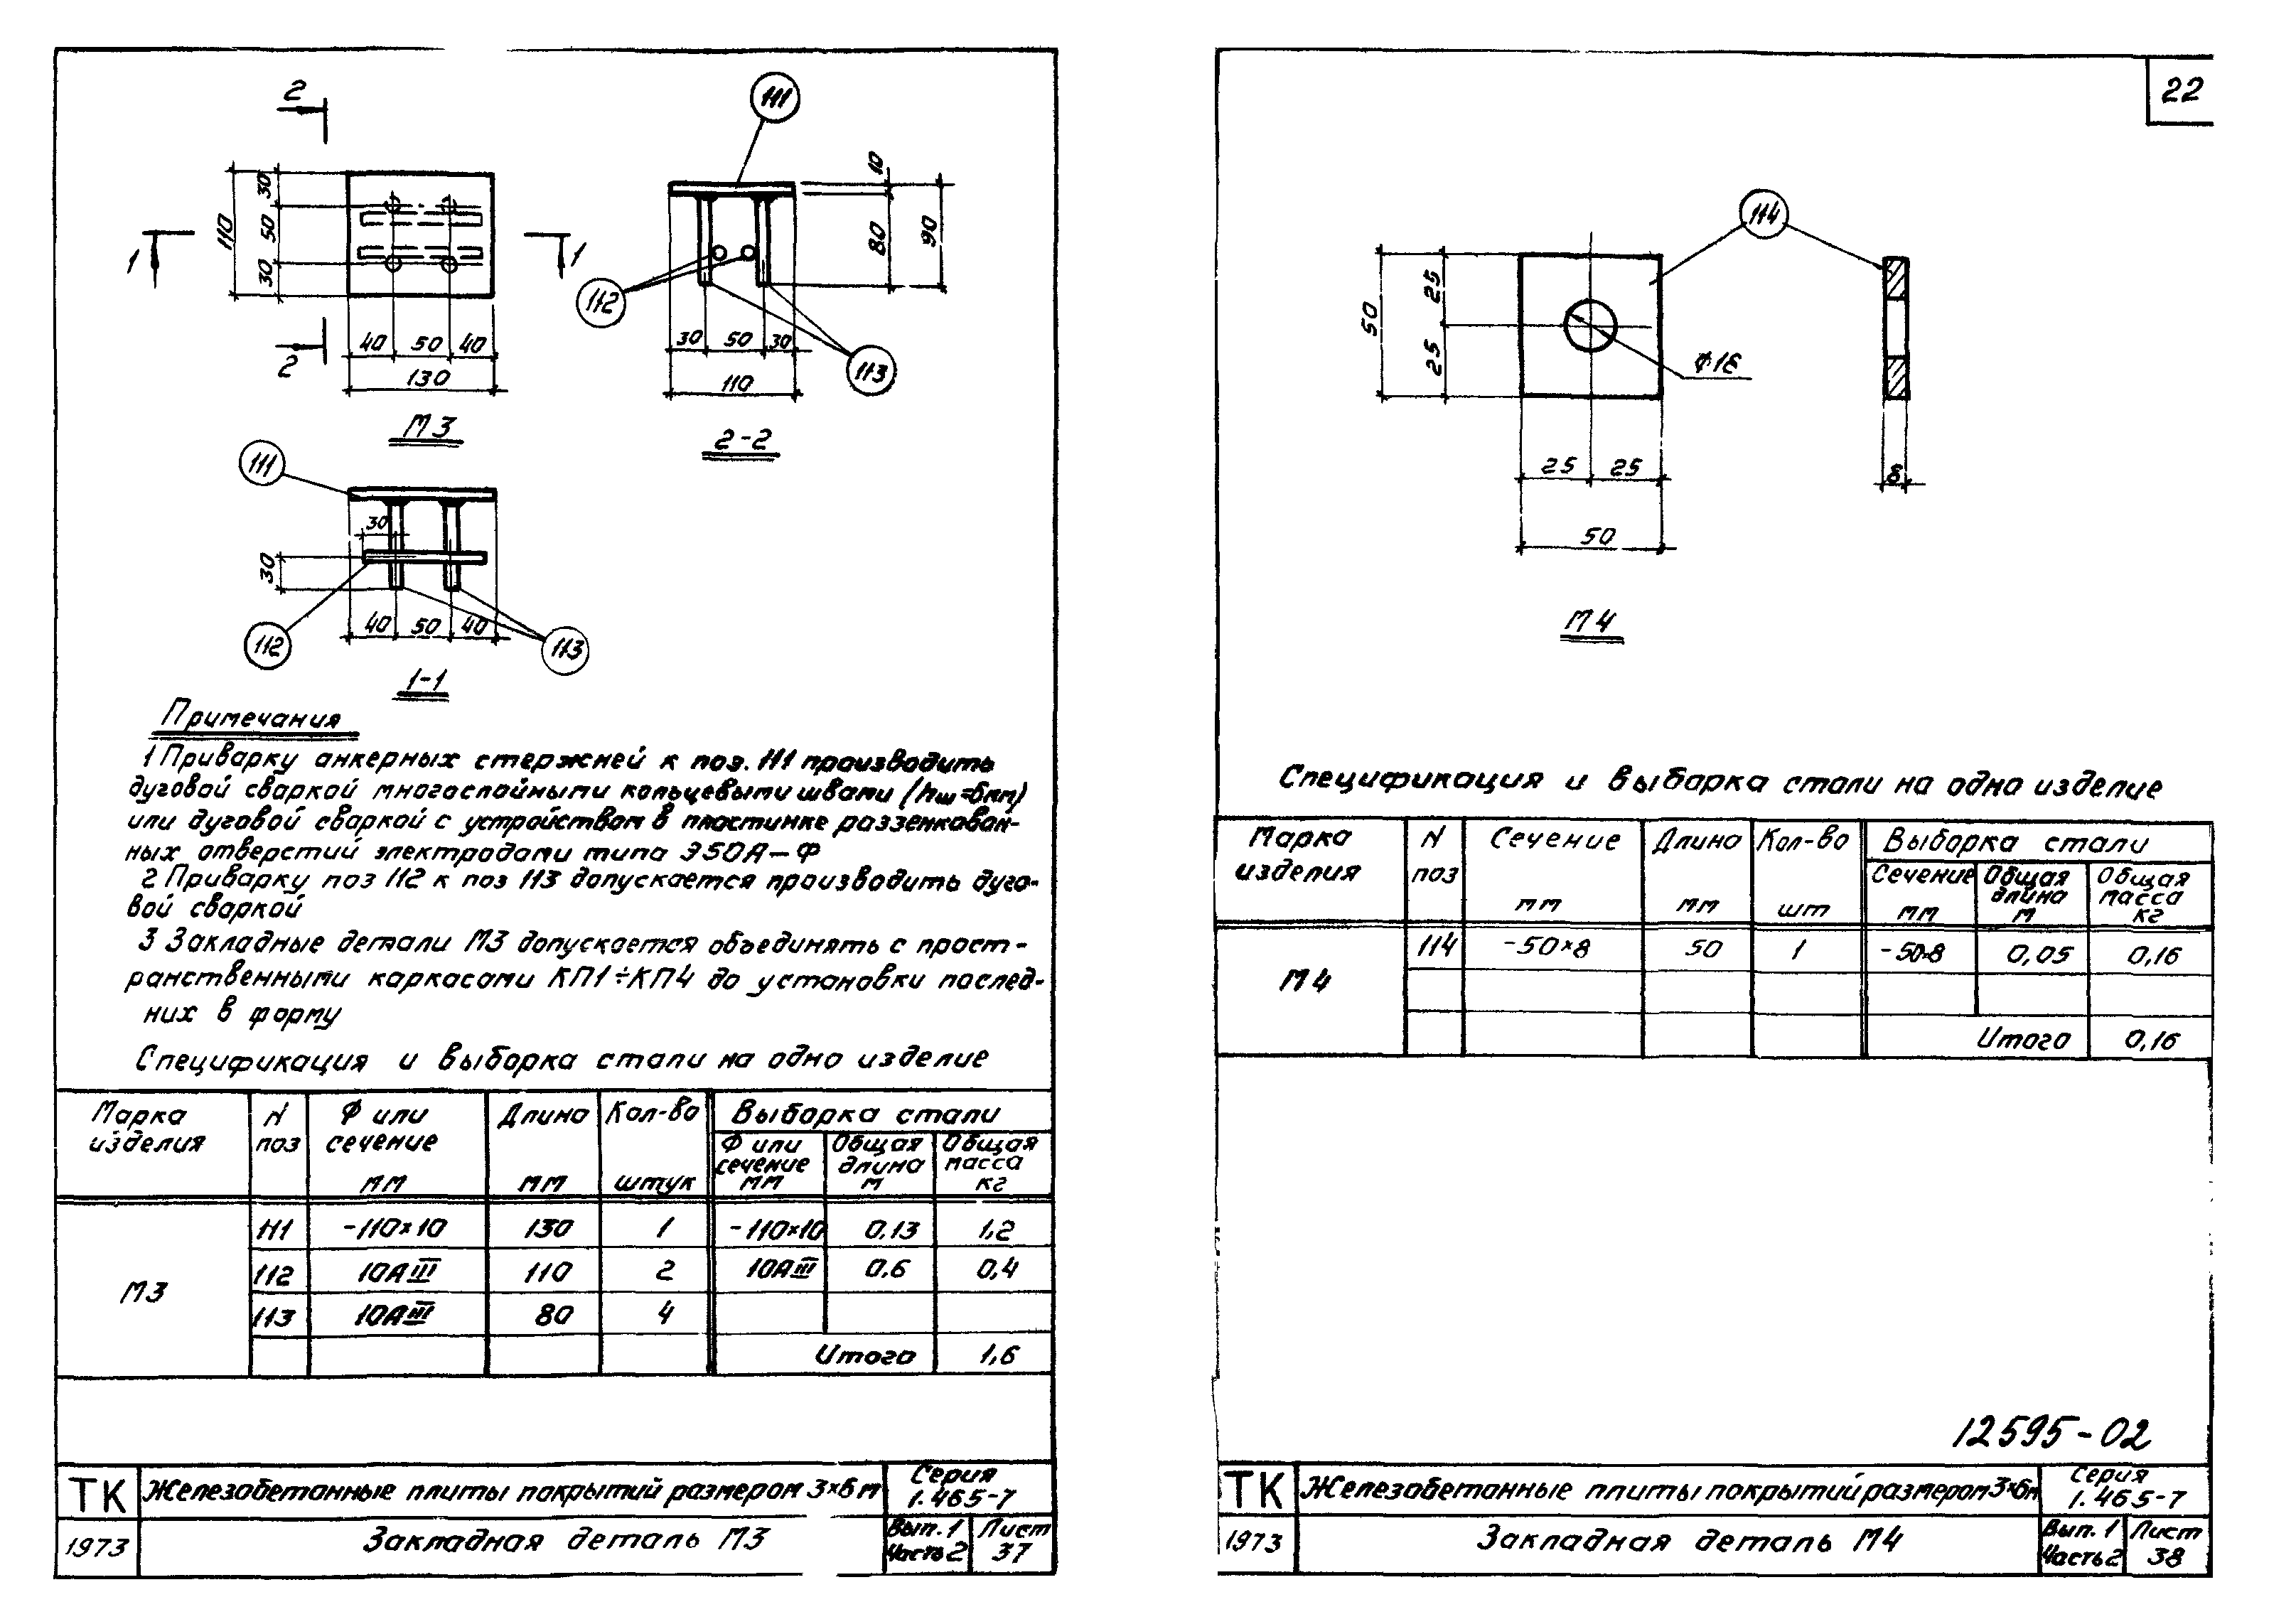 2
111
30
50
30
110
1
1
2
40
50
40
130
М3
10
80
90
112
30
50
30
110
113
2-2
111
30
30
112
40
50
40
113
1-1
Примечания
1 Приварку анкерных стержней к поз. 111 производить
дуговой сваркой многослойными кольцевыми швами (hш=6мм)
или дуговой сваркой с устройством в пластинке раззенкован-
ных отверстий электродами типа Э50А-Ф
2 Приварку поз 112 к поз 113 допускается производить дуго-
вой сваркой
3 Закладные детали М3 допускается объединять с прост-
ранственными каркасами КП1÷КП4 до установки послед-
них в форму
Спецификация и выборка стали на одно изделие
Марка изделия | N поз | Ф или сечение мм | Длина мм | Кол-во штук | Выборка стали
Ф или сечение мм | Общая длина м | Общая масса кг
М3
111 | -110×10 | 130 | 1 | -110×10 | 0,13 | 1,2
112 | 10АIII | 110 | 2 | 10АIII | 0,6 | 0,4
113 | 10АIII | 80 | 4
Итого 1,6
ТК Железобетонные плиты покрытий размером 3×6 м Серия 1.465-7
1973 Закладная деталь М3 Вып. 1 Часть 2 Лист 37
22
114
50
25
25
Ф16
25
25
50
8
М4
Спецификация и выборка стали на одно изделие
Марка изделия | N поз | Сечение мм | Длина мм | Кол-во шт | Выборка стали
Сечение мм | Общая длина м | Общая масса кг
М4 | 114 | -50×8 | 50 | 1 | -50×8 | 0,05 | 0,16
Итого 0,16
12595-02
ТК Железобетонные плиты покрытий размером 3×6м Серия 1.465-7
1973 Закладная деталь М4 Вып. 1 Часть 2 Лист 38